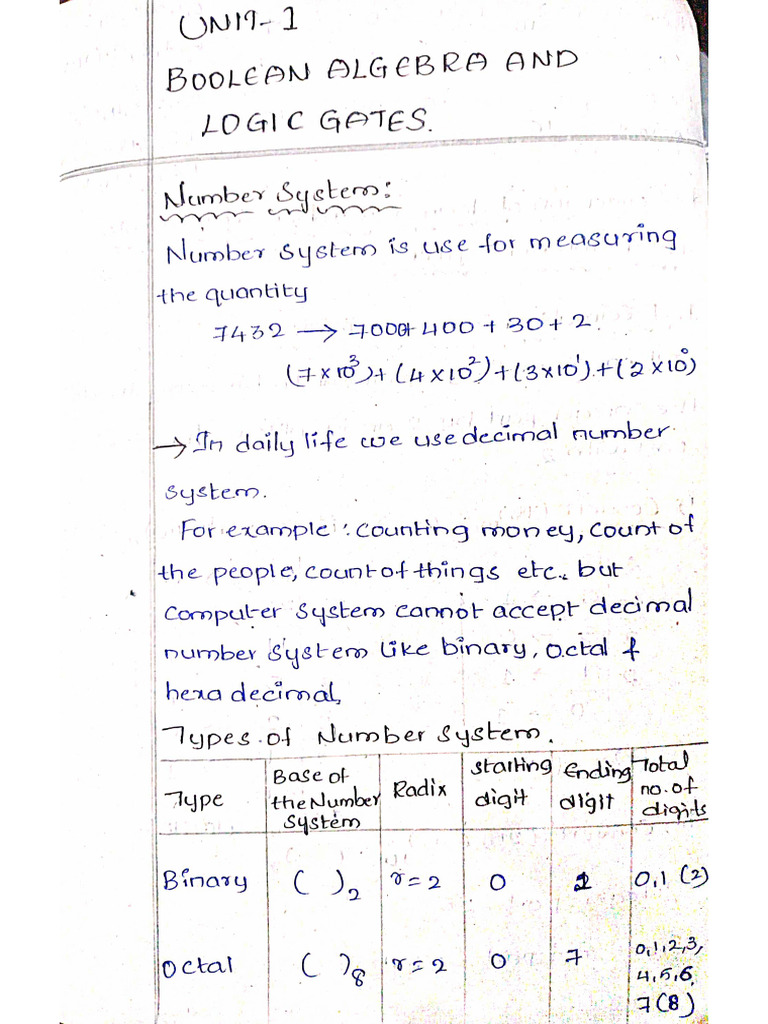 UNIT-1
BOOLEAN ALGEBRA AND
LOGIC GATES.
Number System:
Number system is use for measuring
the quantity
7432 → 7000+400+30+2.
(7×10³)+(4×10²)+(3×10¹)+(2×10⁰)
→ In daily life we use decimal number
system.
For example: counting money, count of
the people, count of things etc., but
computer system cannot accept decimal
number system like binary, octal &
hexa decimal,
Types of Number system.
Type | Base of the Number System | Radix | starting digit | Ending digit | Total no. of digits
Binary | ( )₂ | r=2 | 0 | 1 | 0,1 (2)
Octal | ( )₈ | r=2 | 0 | 7 | 0,1,2,3, 4,5,6, 7(8)